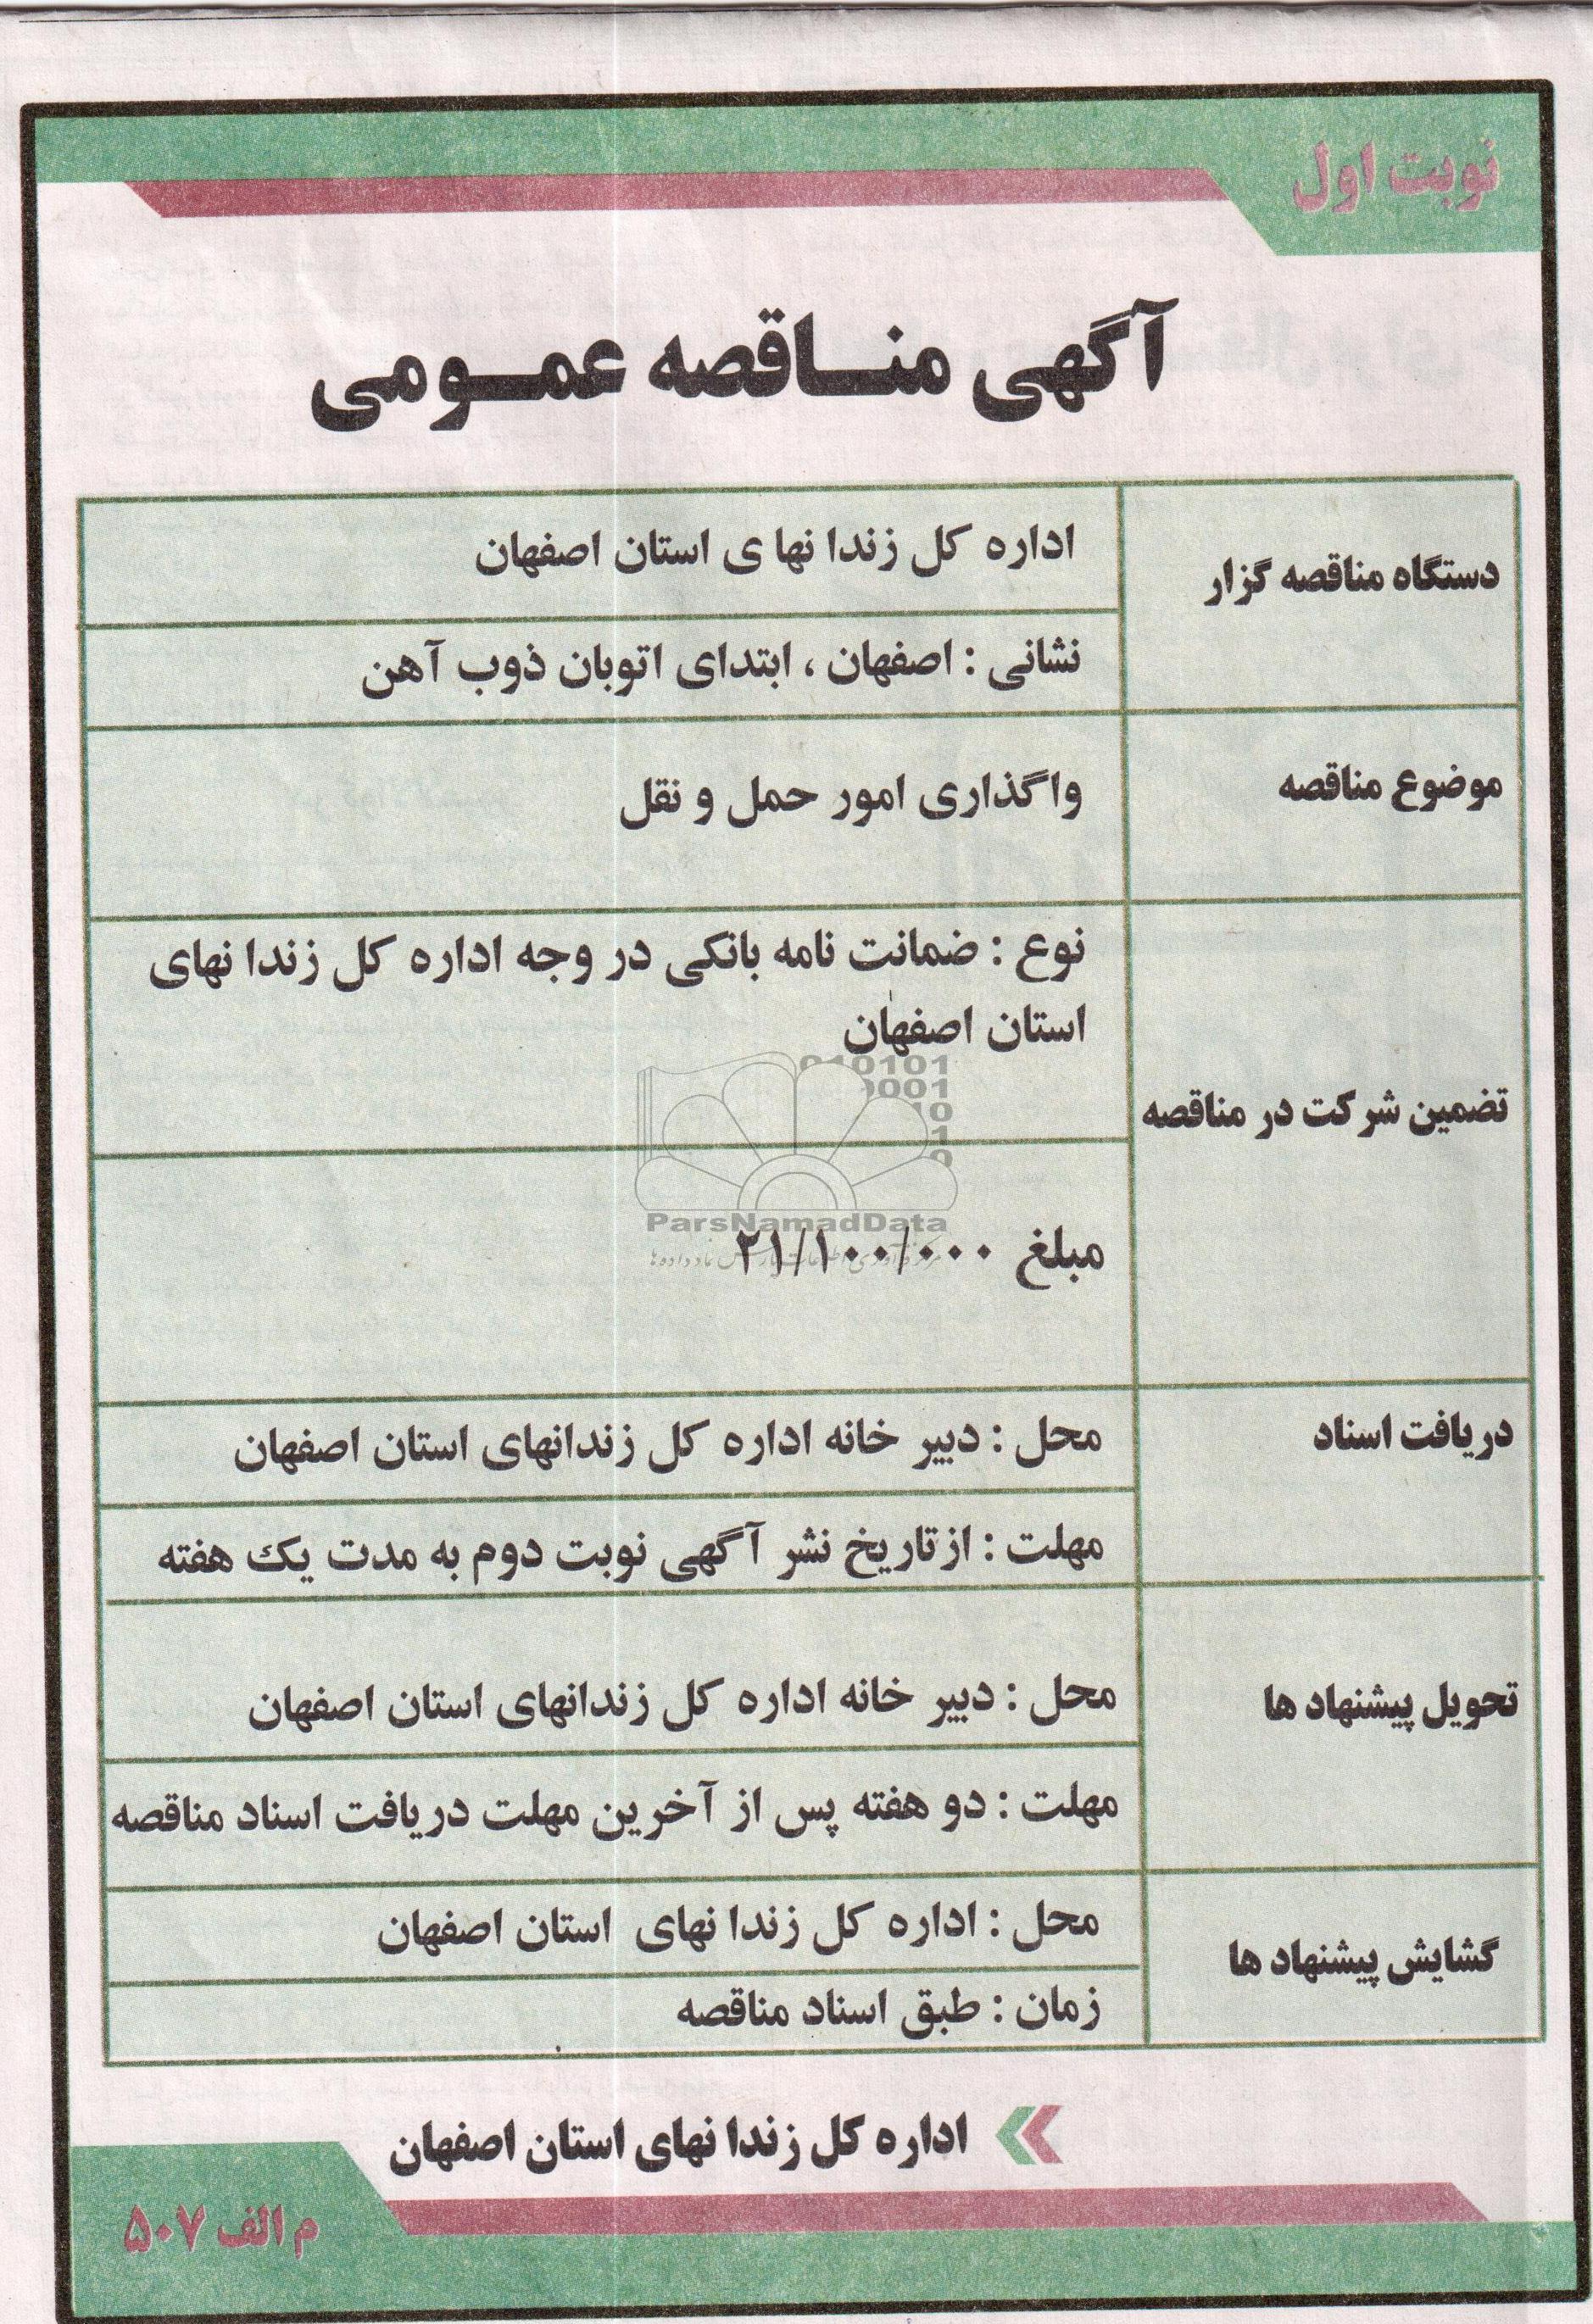 نوبت اول
آگهی مناقصه عمومی
دستگاه مناقصه گزار
اداره کل زندا نها ی استان اصفهان
نشانی : اصفهان ، ابتدای اتوبان ذوب آهن
موضوع مناقصه
واگذاری امور حمل و نقل
تضمین شرکت در مناقصه
نوع : ضمانت نامه بانکی در وجه اداره کل زندا نهای
استان اصفهان
010101
0001
10
1
0
ParsNamadData
مبلغ ۲۱/۱۰۰/۰۰۰
دریافت اسناد
محل : دبیر خانه اداره کل زندانهای استان اصفهان
مهلت : ازتاریخ نشر آگهی نوبت دوم به مدت یک هفته
تحویل پیشنهاد ها
محل : دبیر خانه اداره کل زندانهای استان اصفهان
مهلت : دو هفته پس از آخرین مهلت دریافت اسناد مناقصه
گشایش پیشنهاد ها
محل : اداره کل زندا نهای استان اصفهان
زمان : طبق اسناد مناقصه
اداره کل زندا نهای استان اصفهان
م الف ۵۰۷